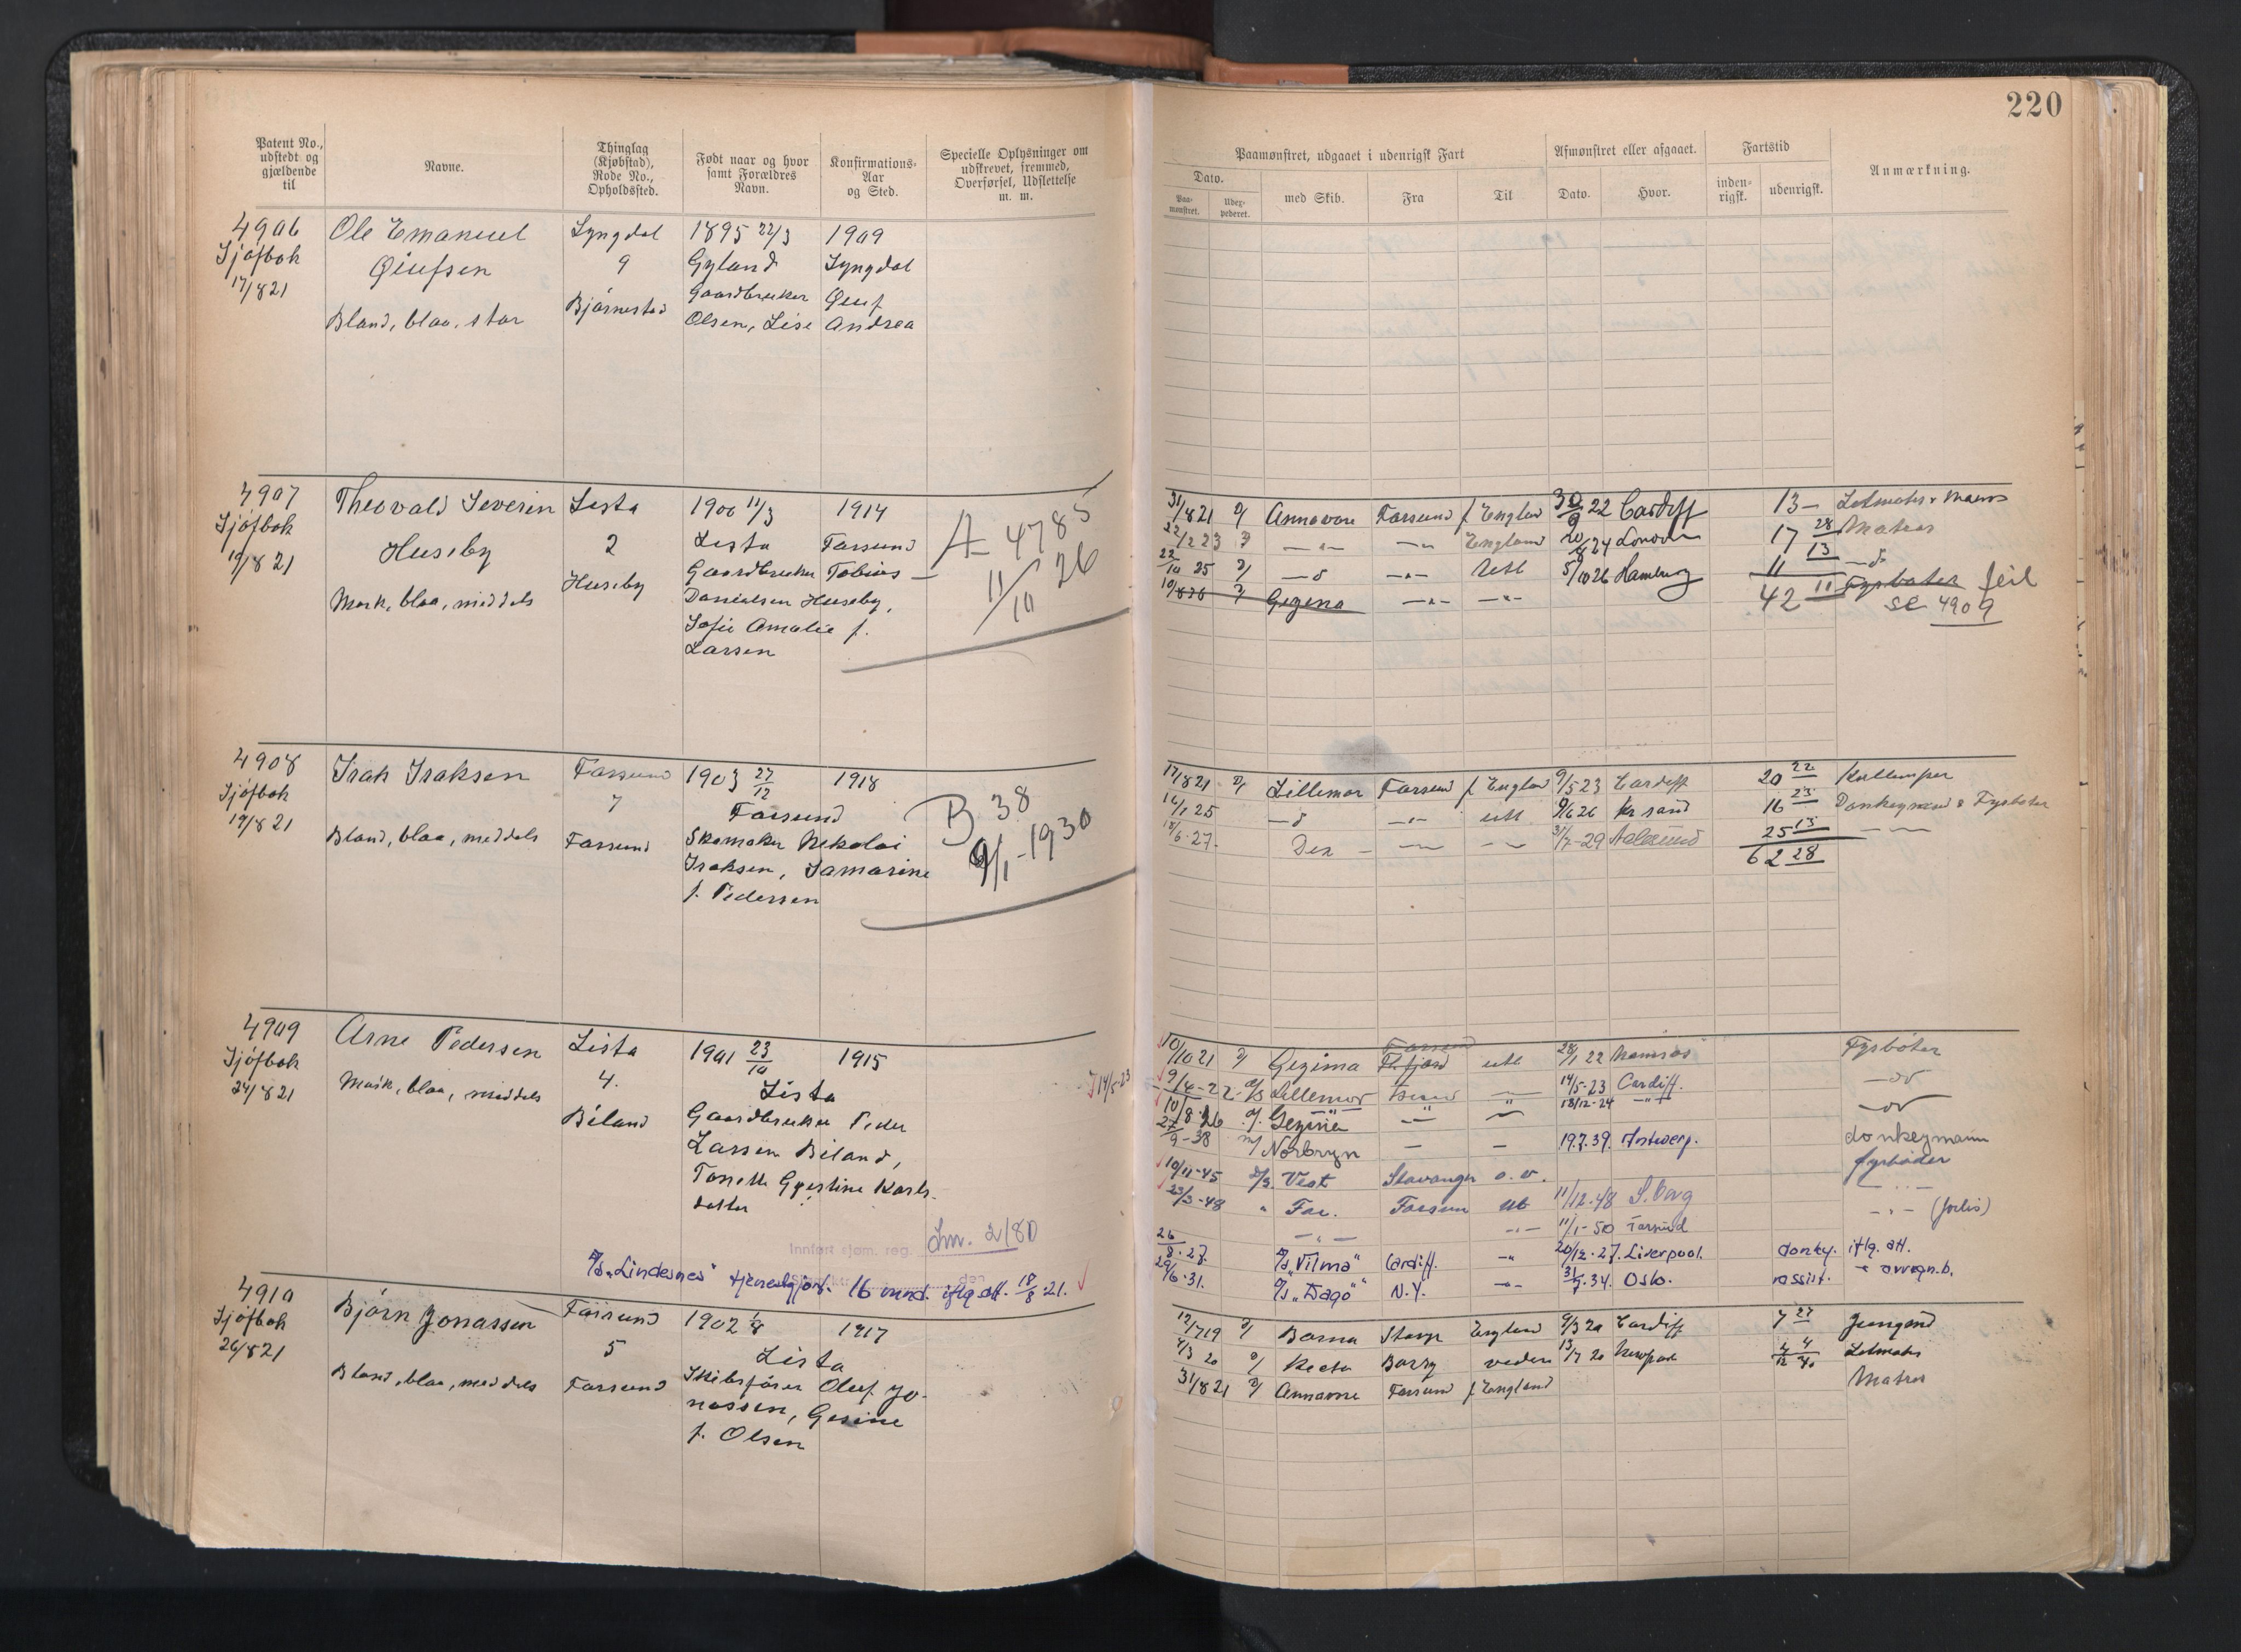 220
Patent No., udstedt og gjældende til
Navne.
Thinglag (Kjøbstad), Rode No., Opholdssted.
Født naar og hvor samt Forældres Navn.
Konfirmations- Aar og Sted.
Specielle Oplysninger om udskrevet, fremmed, Overførsel, Udslettelse m. m.
Paamønstret, udgaaet i udenrigsk Fart
Dato.
Paa- mønstret.
med Skib.
Fra
Til
Afmønstret eller afgaaet.
Dato.
Hvor.
Fartstid
inden- rigsk.
udenrigsk.
Anmærkning.
4906 Ole Emanuel Lyngdal 1895 22/3 1909
Sjøfbok Øiufsen 9 Gyland Lyngdal
17/8 21 Gaardbruker Øiuf
Bland, blaa, stor Bjørnestad Olsen, Lise Andrea
4907 Theovald Severin Lista 1900 11/3 1914
Sjøfbok Huseby 2 Lista Farsund
19/8 21 Huseby Gaardbruker Tobias
Mørk, blaa, middels Danielsen Huseby,
Sofie Amalie f.
Larsen
A 4785
11/10 26
31/8 21 Annavore Farsund f England 30/9 22 Cardiff 13 –
22/2 23 England 20/8 24 London 17 28 Matros
22/10 25 Utl 5/10 26 Hamburg 11 13
10/8 26 Gezina 42 11 Fyrbøter feil
se 4909
4908 Isak Isaksen Farsund 1903 27/12 1918
Sjøfbok 7 Farsund
19/8 21 Skomaker Nikolai
Bland, blaa, middels Farsund Isaksen, Tamarine
f. Pedersen
B 38
9/1-1930
17/8 21 Lillemor Farsund f England 9/5 23 Cardiff 20 22 Kullemper
16/1 25 utl 9/6 26 Kr sand 16 23 Donkeymand & Fyrbøter
18/6-27 31/7-29 Aalesund 25 13
62 28
4909 Arne Pedersen Lista 1901 23/10 1915
Sjøfbok 4. Lista
24/8 21 Mørk, blaa, middels Biland Gaardbruker Peder
Larsen Biland,
Karls-
datter
14/5-23
Innført sjøm. reg. Lm. 2180
D/S „Lindesnes" tjenestgjort. 16 mnd. iflg att. 18/8-21.
10/10 21 Gezina Farsund Fl.fjord utl 28/1 22 Namsos Fyrbøter
9/4-22 D/S Lillemor 14/5-23 Cardiff.
10/8-26 Gezina 18/12-24
27/9-38 Norbryn 19.7.39. Antwerp. donkeymann
10/11-45 D/S Vest Stavanger o. v. fyrbøder
23/3-48 Far. Farsun Utl 11/12-48 S. borg
11/1-50 Farsund (forlis)
26/8-27. D/S „Vilma" Cardiff. 20/12-27. Liverpool. donky. iflg. att.
29/6-31. D/S „Dago" N.Y. 31/7-34. Oslo. assist. avregn.b.
4910 Bjørn Jonassen Farsund 1902 1/8 1917
Sjøfbok 5 Lista
26/8 21 Skibsfører Oluf Jo-
Bland, blaa, middels Farsund nassen, Gesine
f. Olsen
12/7 19 Barna England 9/3 20 Cardiff 7 27 Jungmd
Recta Barry 13/7 20 Newport Letmatr
31/8 21 Annavore Farsund f England Matros